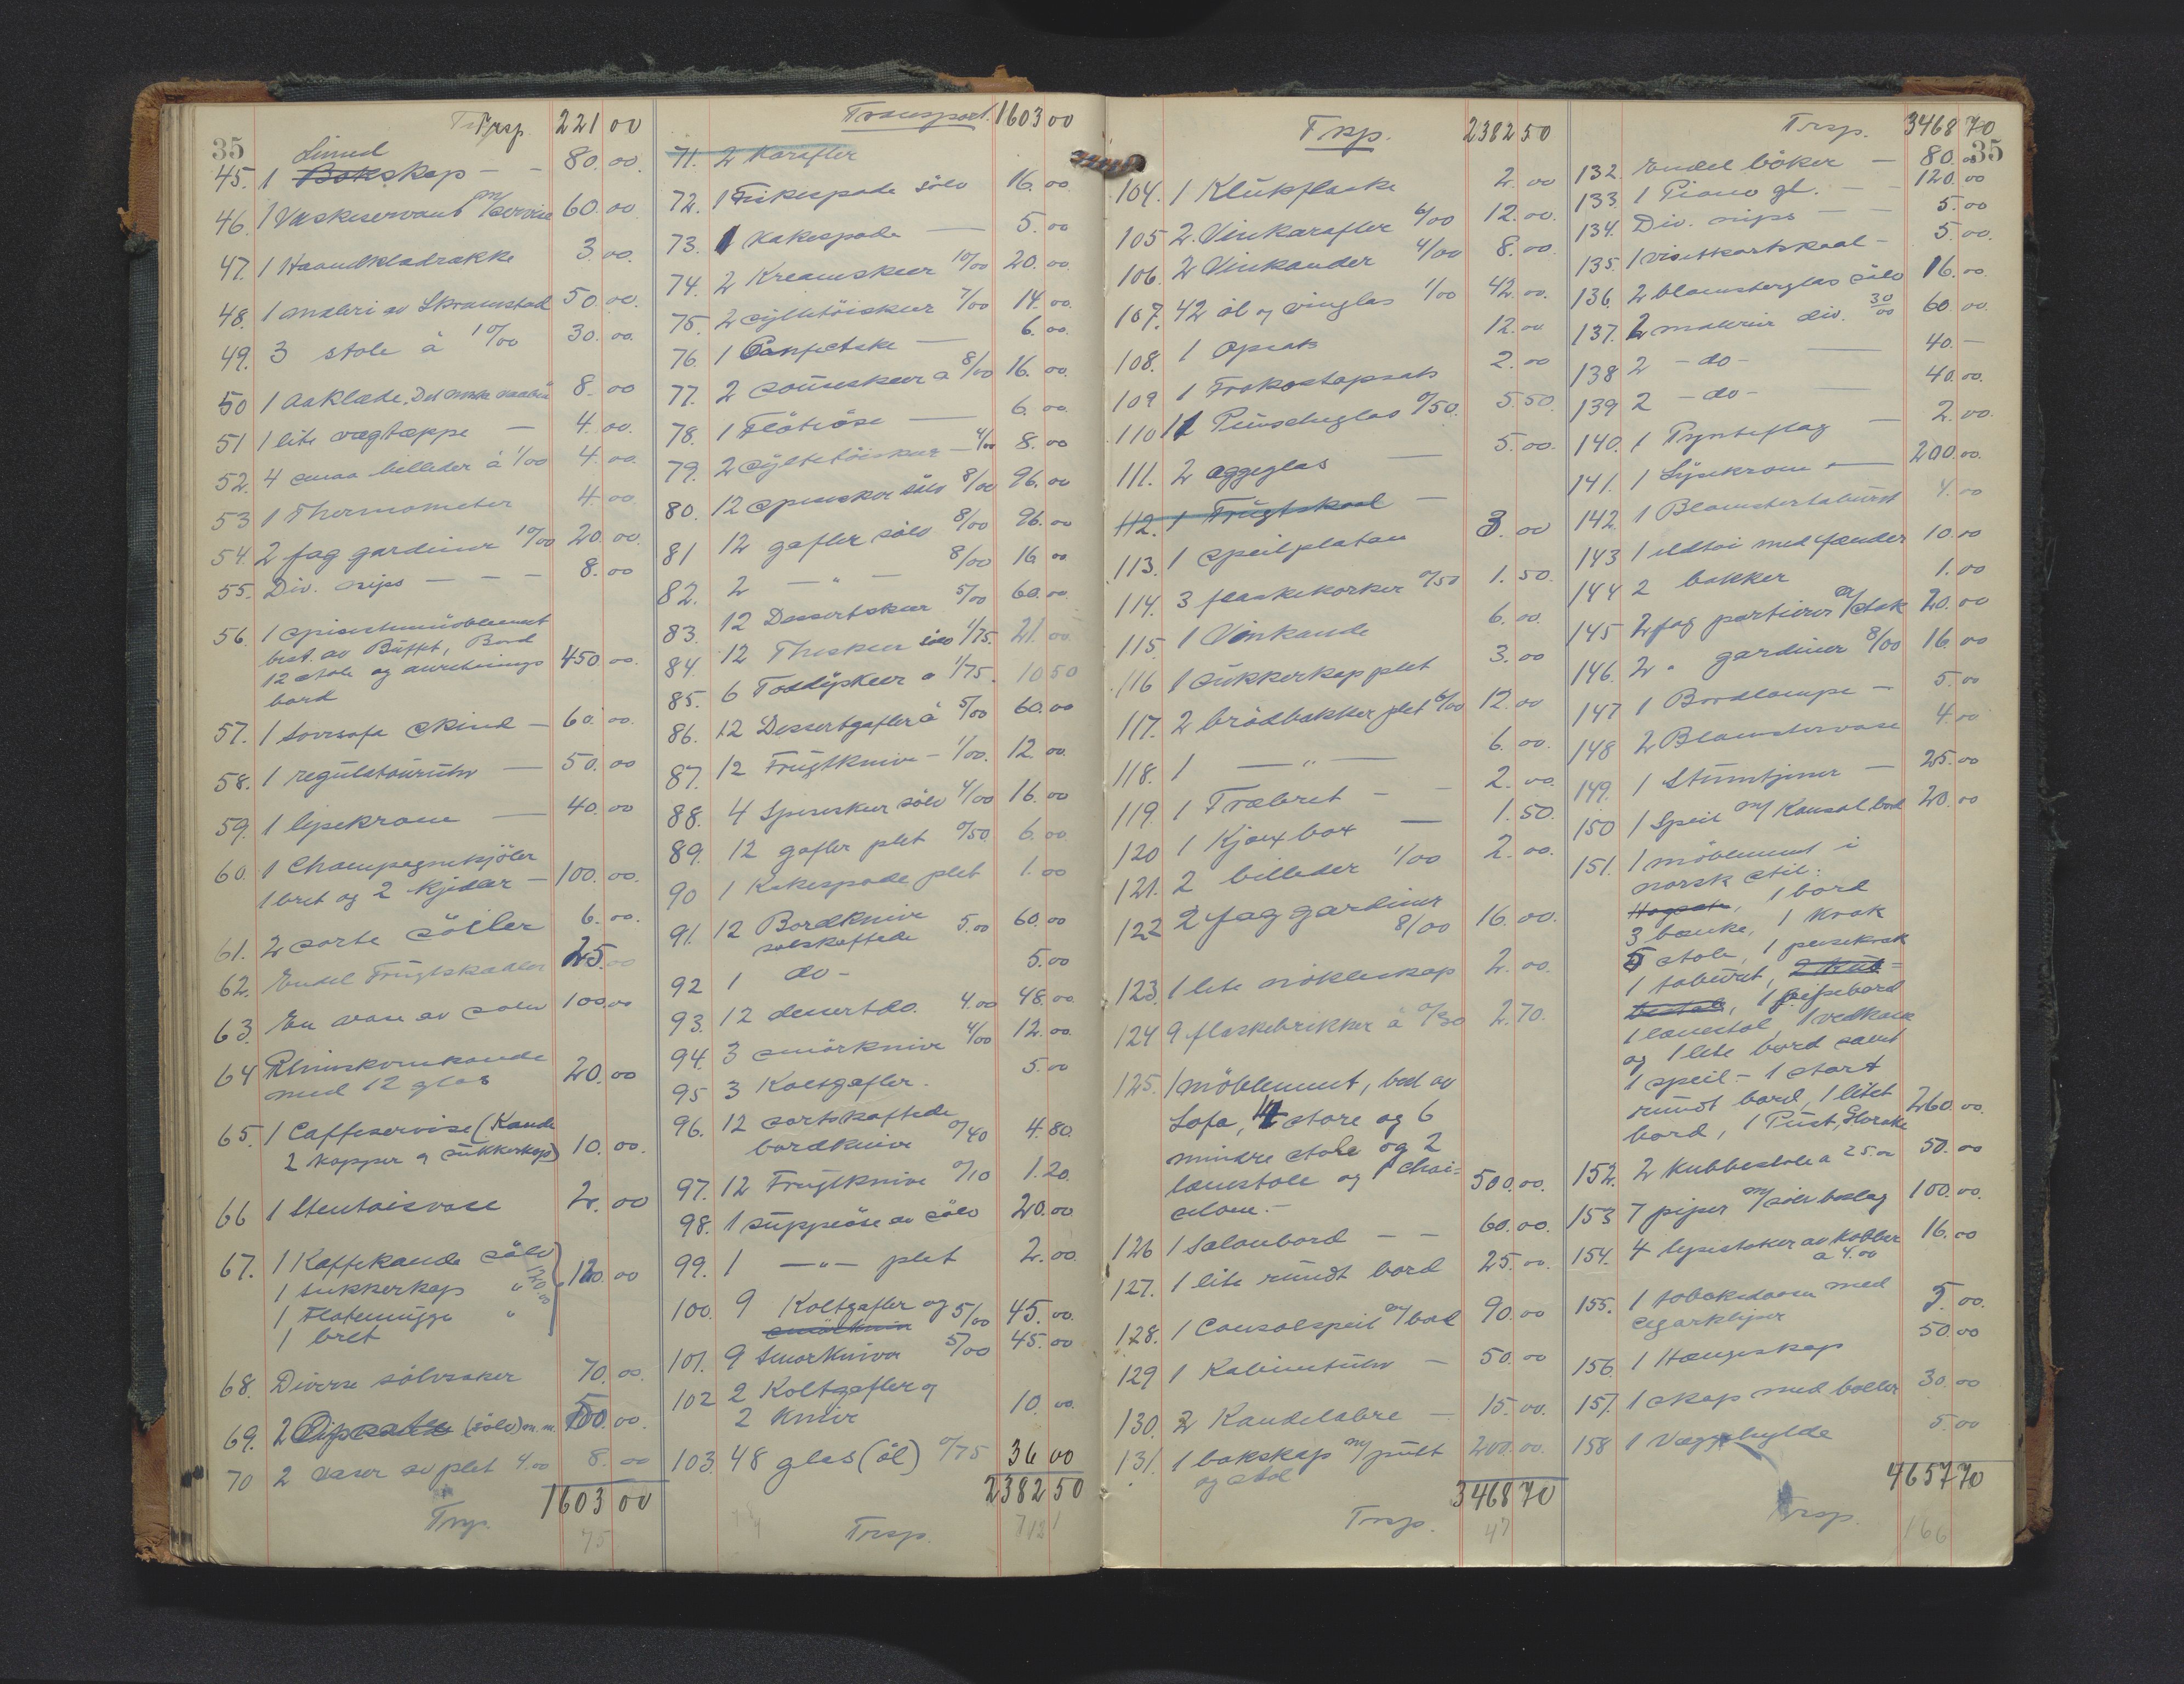 35
Trsp. 221 00
Linned
45. 1 Bokskap - - 80. 00.
46. 1 Vaskeservant m/servise 60. 00
47. 1 Haandklædrække 3. 00.
48. 1 maleri av Skramstad 50. 00.
49. 3 stole à 10/00 30. 00.
50 1 Aaklæde. 8. 00
51 1 lite vægtæppe - 4. 00.
52. 4 smaa billeder à 1/00 4. 00.
53 1 Thermometer 4. 00
54. 2 fag gardiner 10/00 20. 00.
55. Div. nips - - - 8. 00
56. 1 spisestuemöblement
best. av Büffet, Bord
12 stole og anretnings 450 00.
bord
57. 1 Sovesofa skind - 60. 00.
58. 1 regülatourühr - 50. 00
59. 1 lysekrone - 40. 00
60. 1 Champagnekjöler
1 bret og 2 kjeder - 100. 00.
61. 2 sorte söiler 6. 00.
62. Endel Frügtskaaler 25. 00
63. En vase av sölv 100. 00
64 Rhinskvinskande
med 12 glas 20. 00
65. 1 Caffeservise (Kande
2 kopper og sükkerkop) 10. 00.
66 1 Stentöisvase 2. 00
67. 1 Kaffekande sölv
1 sukkerkop " 120. 00
1 Flötemügge "
1 bret
120.00
68. Diverse sölvsaker 70. 00.
69. 2 Opsatse (sölv) m.m. 500. 00.
70 2 vaser av plet 4.00 8. 00
1603 00
Trsp.
75
Transport. 1603 00
71. 2 Karafler
72. 1 Fiskespade sölv 16. 00.
73. 1 Kakespade - 5. 00
74. 2 Kremskeer 10/00 20. 00.
75. 2 syltetöiskeer 7/00 14. 00.
76. 1 Confectske - 6. 00.
77. 2 soüseskeer a 8/00 16. 00.
78. 1 Flöteöse - 6. 00.
79. 2 syltetöiskeer - 4/00 8. 00
80. 12 spiseskeer sölv 8/00 96. 00
81 12 gafler sölv 8/00 96. 00
82. 2 - " - 8/00 16 00
83. 12 Dessertskeer 5/00 60. 00.
84. 12 Theskeer sölv 1/75. 21. 00.
85. 6 Toddyskeer a 1/75. 10 50
86. 12 Dessertgafler à 5/00 60. 00
87. 12 Frügtknive - 1/00. 12. 00.
88. 4 Spiseskeer sölv 4/00 16. 00
89. 12 gafler plet 0/50. 6. 00
90 1 Kakespade plet 1. 00
91. 12 Bordknive
sölvskaftede 5.00 60. 00
92 1 do - 5. 00
93. 12 dessertdo. 4.00 48. 00.
94. 3 smörknive 4/00 12. 00.
95 3 Koltgafler. 5. 00
96. 12 sortskaftede
bordknive 0/40 4. 80.
97. 12 Frügtknive 0/10 1. 20.
98. 1 süppeöse av sölv 20. 00
99. 1 - " - plet 2. 00.
100. 9 Koltgafler og 5/00 45. 00.
smörknive
101. 9 Smörkniver 5/00 45. 00
102 2 Koltgafler og
2 knive 10. 00.
103. 48 glas (öl) 0/75 36 00
2382 50
Trsp.
Trsp. 2382 50
104. 1 Klükflaske 2. 00
105 2. Vinkarafler 6/00 12. 00.
106. 2 Vinkander 4/00 8. 00.
107. 42 öl og vinglas 1/00 42. 00.
108. 1 Opsats 12. 00
109 1 Frokostopsats 2. 00
110 11 Pünscheglas 0/50. 5. 50.
111. 2 æggeglas - 5. 00.
112. 1 Früg­tskaal -
113. 1 speilplatau 3. 00
114. 3 flaskekorker 0/50 1. 50.
115. 1 Vinkande 6. 00.
116 1 sükkerkop plet 3. 00
117. 2 brödbakker plet 6/00 12. 00
118. 1 - " - 6. 00.
119. 1 Træbret - - 2. 00.
120 1 Kjæxbox - 1. 50.
121. 2 billeder 1/00 2. 00.
122 2 fag gardiner
8/00 16. 00.
123. 1 lite nökkelskap 2. 00.
124 9 flaskebrikker à 0/30 2. 70.
125. 1 möblement, best av
Sofa, 4 store og 6
mindre stole og 2
lænestole og 1 chai=
selone. - 500. 00.
126 1 Salonbord - - 60. 00.
127. 1 lite ründt bord 25. 00.
128. 1 Consolspeil m/bord 90. 00
129 1 Kabinetsühr - 50. 00
130. 2 Kandelabre - 15. 00.
131. 1 bokskap m/pült 200. 00.
og stol
3468 70
Trsp.
47
Trsp. 3468 70
35
132. Endel böker - 80. 00
133. 1 Piano gl. - - 120. 00
134. Div. nips - - 5. 00
135. 1 visitkortskaal - 5. 00.
136 2 blomsterglas sölv 16. 00.
137. 2 malerier div. 30/00 60 00.
138 2 - do - - 40. -
139 2 - do - - 40. 00.
140. 1 Pynteflag - 2. 00.
141. 1 Lysekrone - 200. 00.
142 1 Blomstertabüret 4. 00
143 1 ildtöi med fender 10. 00
144 2 bakker 1. 00
145 2 fag portierer m/stak 20. 00
146. 2 " gardiner 8/00 16. 00
147 1 Bordlampe - 5. 00
148 2 Blomstervase 4. 00
149. 1 Stümtjener - 25. 00
150 1 Speil m/ Konsolbord 20. 00
151. 1 möblement i
norsk stil:
1 bord
3 bænke, 1 krak
5 stole, 1 peisekrak
1 taburet,
1 peisebord
1 lænestol, 1 vedkasse
og 1 lite bord samt
1 speil - 1 stort
ründt bord, 1 litet
bord, 1 Püst, 260. 00.
152. 2 Kubbestole a 25.00 50. 00
153 7 piper m/sölvbeslag 100. 00.
154. 4 lysestaker av kobber 16. 00
a 4.00
155. 1 tobaksdaase med
cigarklipper 5. 00.
156. 1 Hængeskap 50. 00
157. 1 skap med boller 30. 00
158 1 Væggehylde 5. 00
4657 70
Trsp.
166